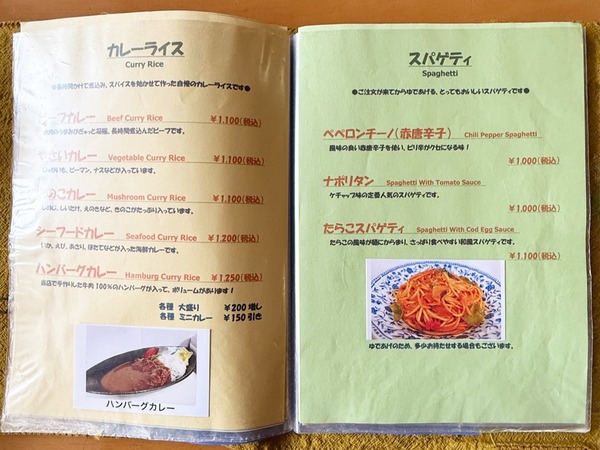 カレーライス
Curry Rice
●長時間かけて煮込み、スパイスを効かせて作った自慢のカレーライスです●
ビーフカレー Beef Curry Rice ¥1,100(税込)
長時間煮込んだビーフです。
やさいカレー Vegetable Curry Rice ¥1,100(税込)
じゃがいも、ピーマン、ナスなどが入っています。
きのこカレー Mushroom Curry Rice ¥1,100(税込)
しめじ、しいたけ、えのきなど、きのこがたっぷり入っています。
シーフードカレー Seafood Curry Rice ¥1,200(税込)
いか、えび、あさり、ほたてなどが入った海鮮カレーです。
ハンバーグカレー Hamburg Curry Rice ¥1,250(税込)
当店で手作りした牛肉100%のハンバーグが入って、ボリュームがあります!
各種 大盛り ¥200増し
各種 ミニカレー ¥150引き
ハンバーグカレー
スパゲティ
Spaghetti
●ご注文が来てからゆであげる、とってもおいしいスパゲティです●
ペペロンチーノ(赤唐辛子) Chili Pepper Spaghetti
風味の良い赤唐辛子を使い、ピリ辛がクセになる味!
¥1,000(税込)
ナポリタン Spaghetti With Tomato Sauce
ケチャップ味の定番人気のスパゲティです。
¥1,000(税込)
たらこスパゲティ Spaghetti With Cod Egg Sauce
たらこの風味が麺にからまり、さっぱり食べやすい和風スパゲティです。
¥1,100(税込)
ゆであげのため、多少お待たせする場合もございます。